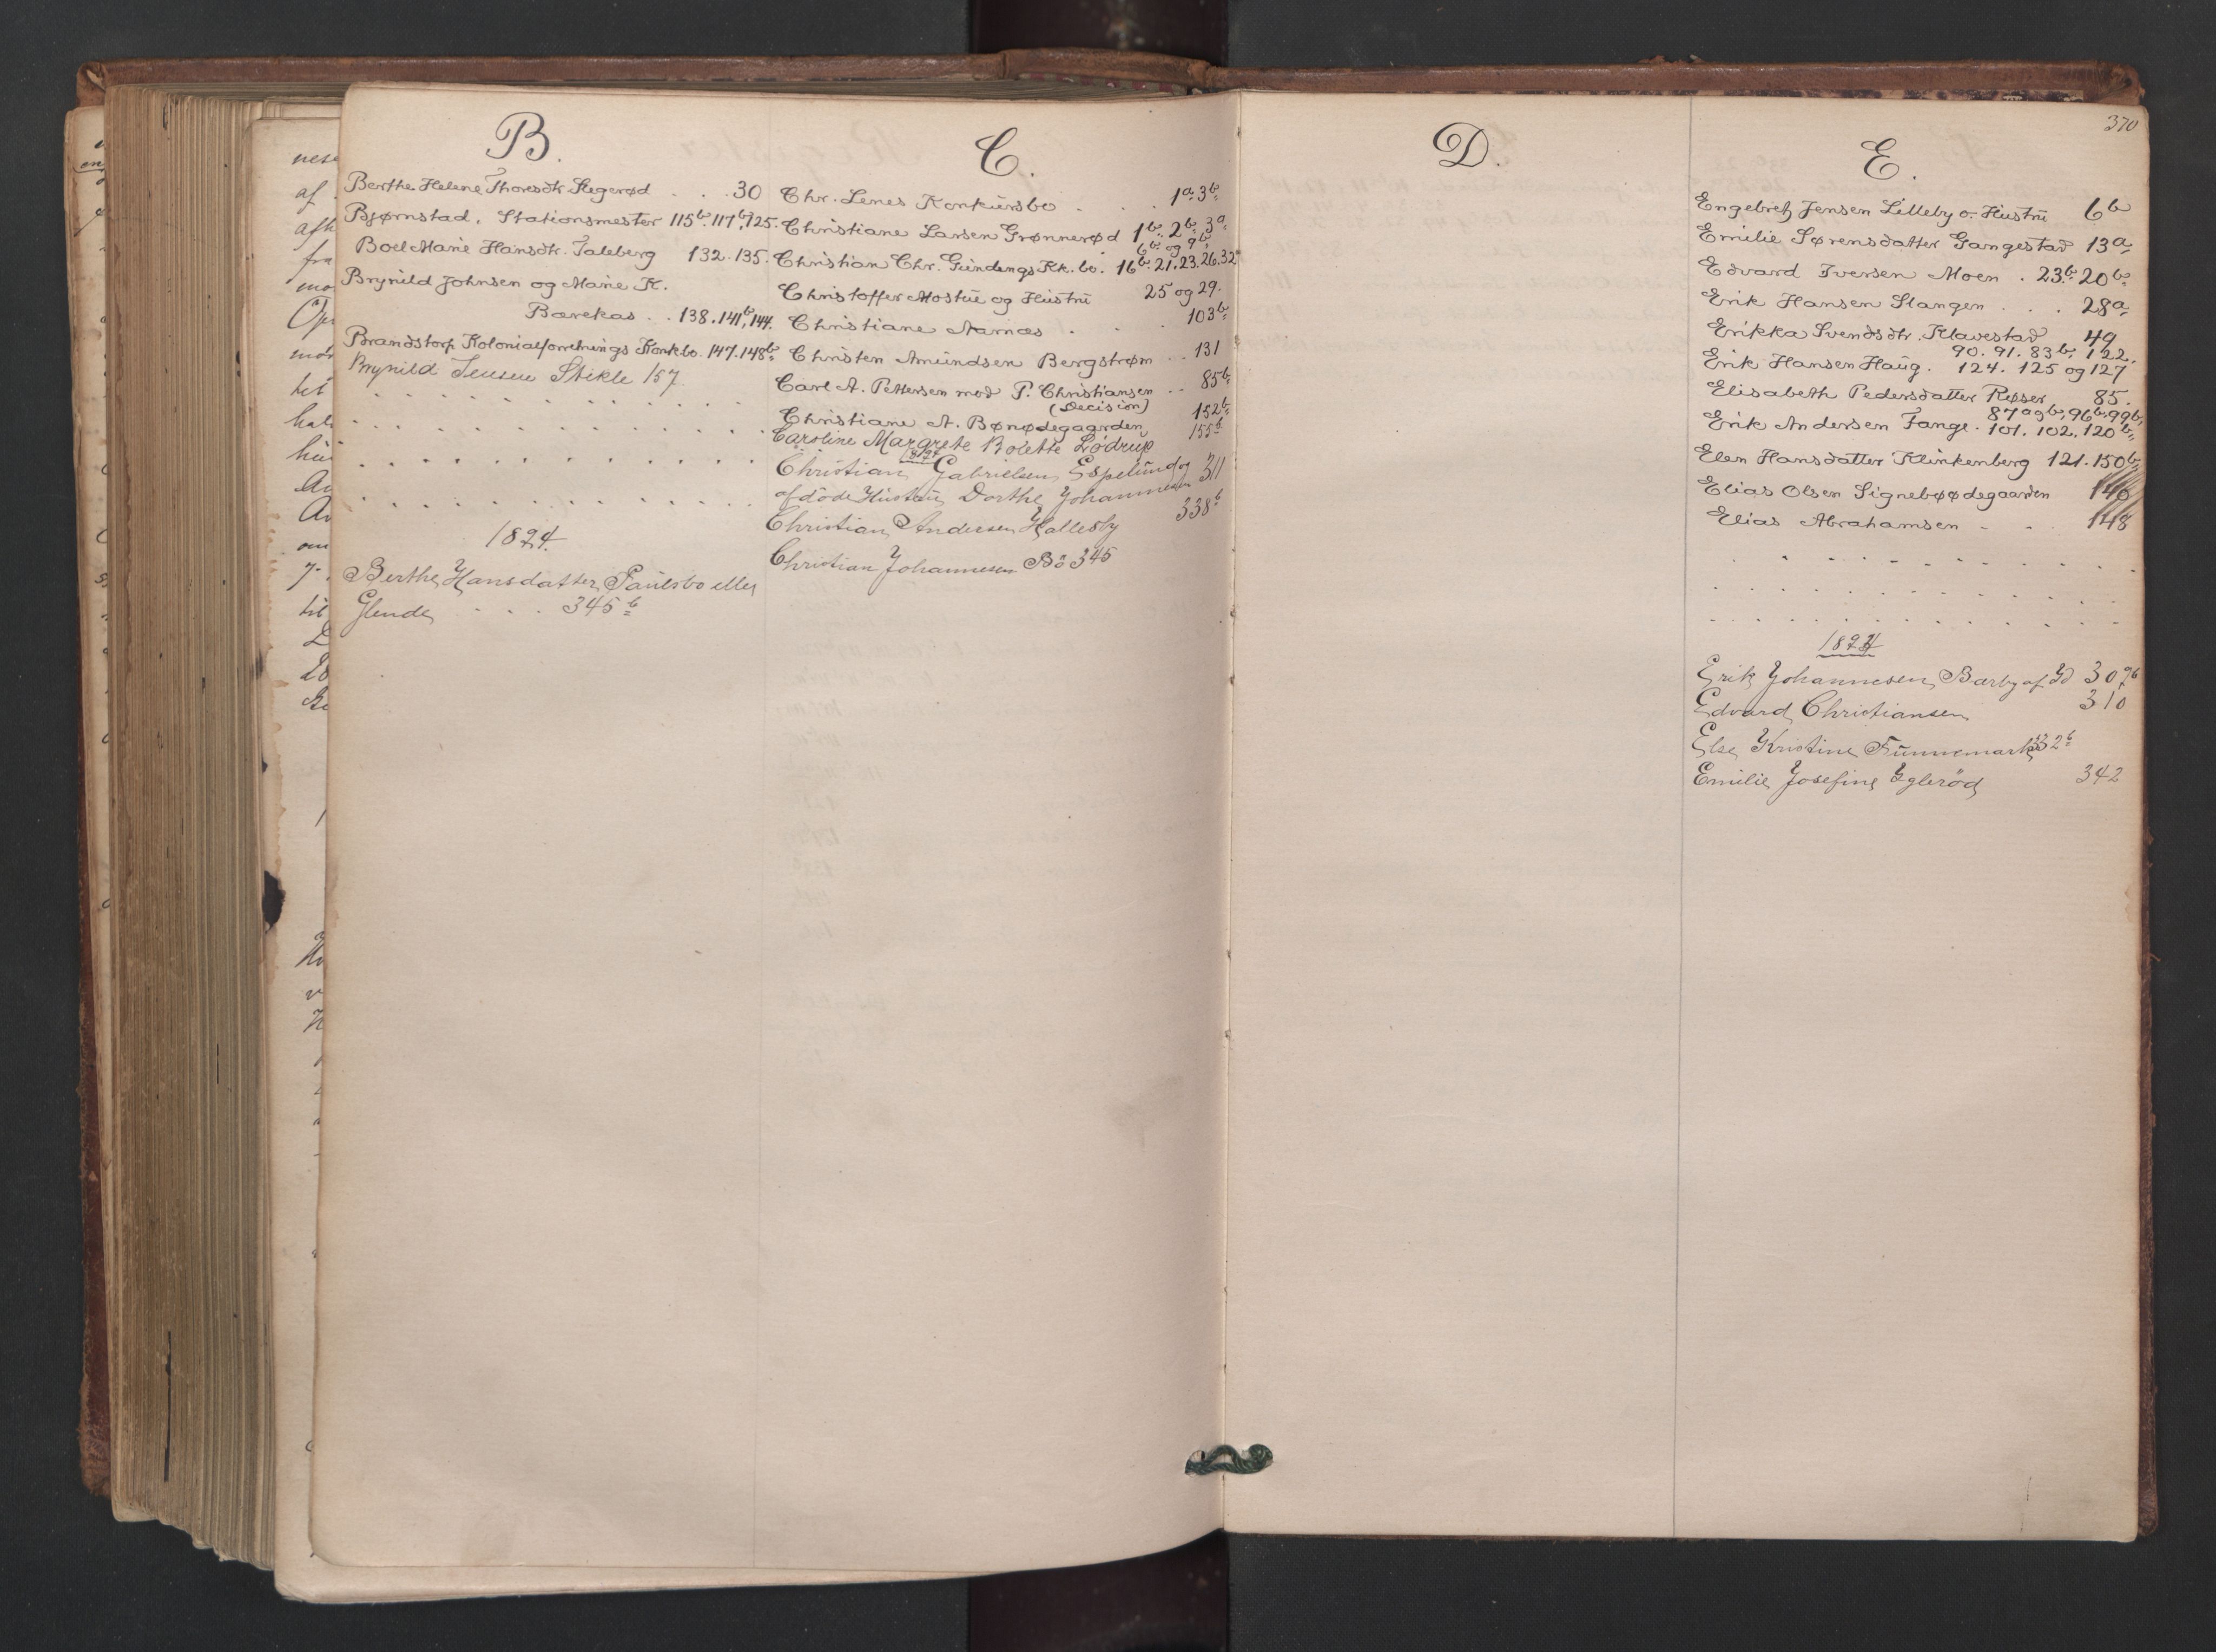 B.
Berthe Helene Thoresdtr. Stegerød . . . 30
Bjørnstad. Stationsmester 115b. 117b. 125.
Boel Marie Hansdtr. Taleberg 132. 135.
Brynild Johnsen og Marie K.
Bærekas . . 138. 141b. 144.
Brandstorp Kolonialforretnings Konkbo. 147. 148b.
Brynild Jensen Stikle 157
1894
Berthe Hansdatter Paulsbo eller
Glende . . . . 345b
C.
Chr. Lenes Konkursbo . . . . 1a. 3b.
Christiane Larsen Grønnerød 1b. 2b. 3a.
6b. og 9b.
Christian Chr. Gundengs Kk. bo. 16b. 21. 23. 26. 32a
Christoffer Mostue og Hustru 25 og 29.
Christiane Aarnæs . . . 103b.
Christen Amundsen Bergstrøm . . 131
Carl A. Pettersen mod P. Christiansen . . 85b.
(Decision)
Christiane A. Bønødegaarden 152b.
Caroline Margrete Bolette Lödrup 155b
1894
Christian Gabrielsen Espelund og 311
afdöde Hustru Dorthe Johannesen
Christian Andersen Hallesby 338b
Christian Johannesen Bö 345
D.
370
E.
Engebret Jensen Lilleby o. Hustru 6b
Emilie Sørensdatter Gangestad 13a
Edvard Iversen Moen . 23b. 20b.
Erik Hansen Slangen . . . 28a
Erikka Svendsdtr. Klavestad 49
90. 91. 83b. 122.
Erik Hansen Haug . 124. 125 og 127
Elisabeth Pedersdatter Røser 85.
87a og b. 96b. 99b.
Erik Andersen Tange . 101. 102. 120b.
Elen Hansdatter Klinkenberg 121. 150b.
Elias Olsen Signebøødegaarden 140
Elias Abrahamsen . . . 148
1894
Erik Johannesen Bærby af Id 307b
Edvard Christiansen 310
Else Kristine Funnemark 332b
Emilie Josefine Ygleröd 342